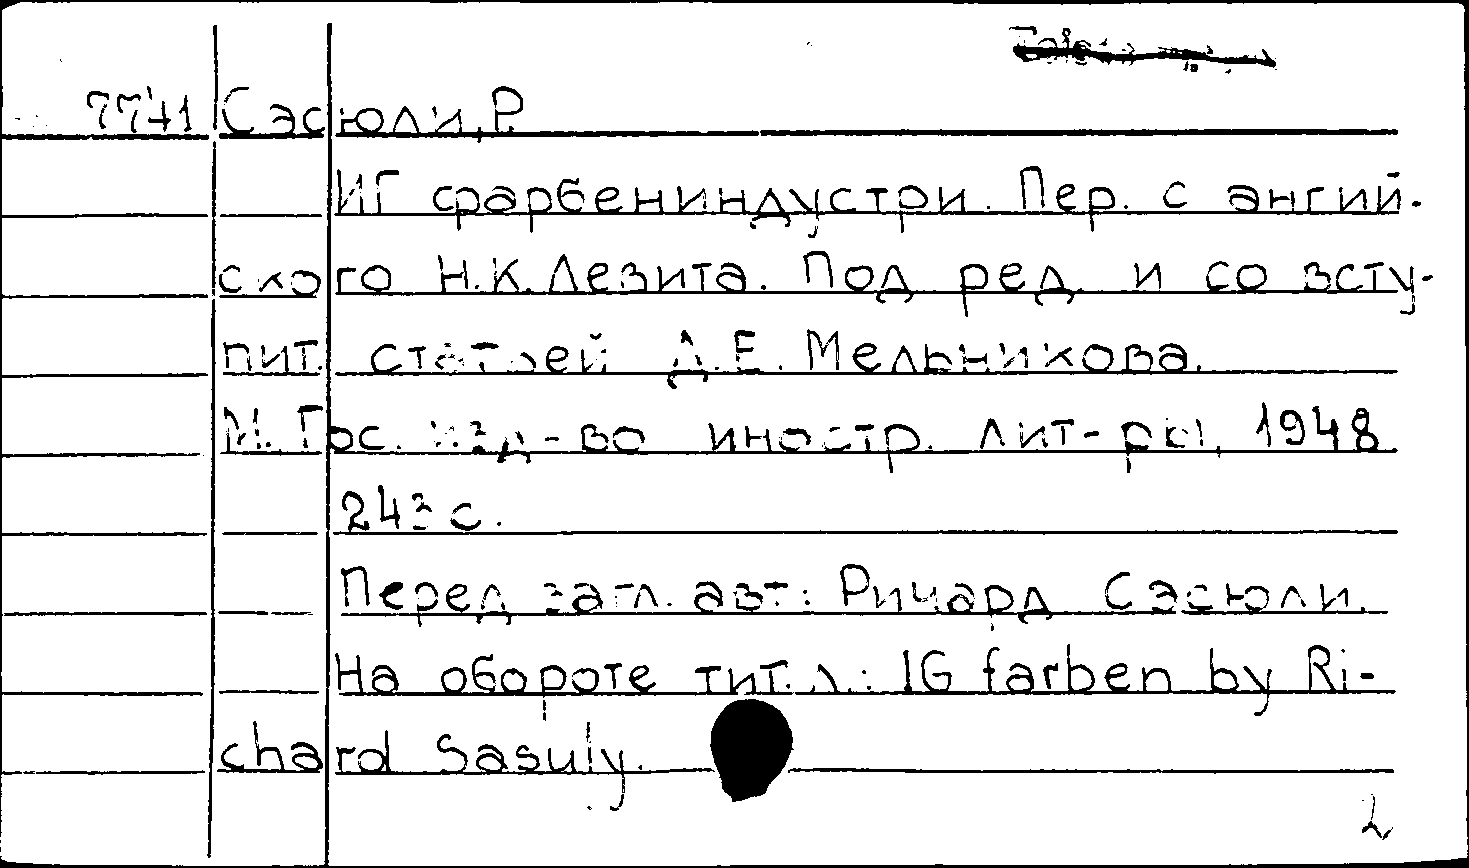 7741 Сэсюли, Р.
ИГ фарбениндустри. Пер. с ангий-
ского Н.К. Лезита. Под ред. и со всту-
пит. статьей Д.Е. Мельникова.
М. Гос. изд-во иностр. лит-ры, 1948.
243 с.
Перед загл. авт.: Ричард Сэсюли.
На обороте тит. л.: IG farben by Ri-
chard Sasuly.
2